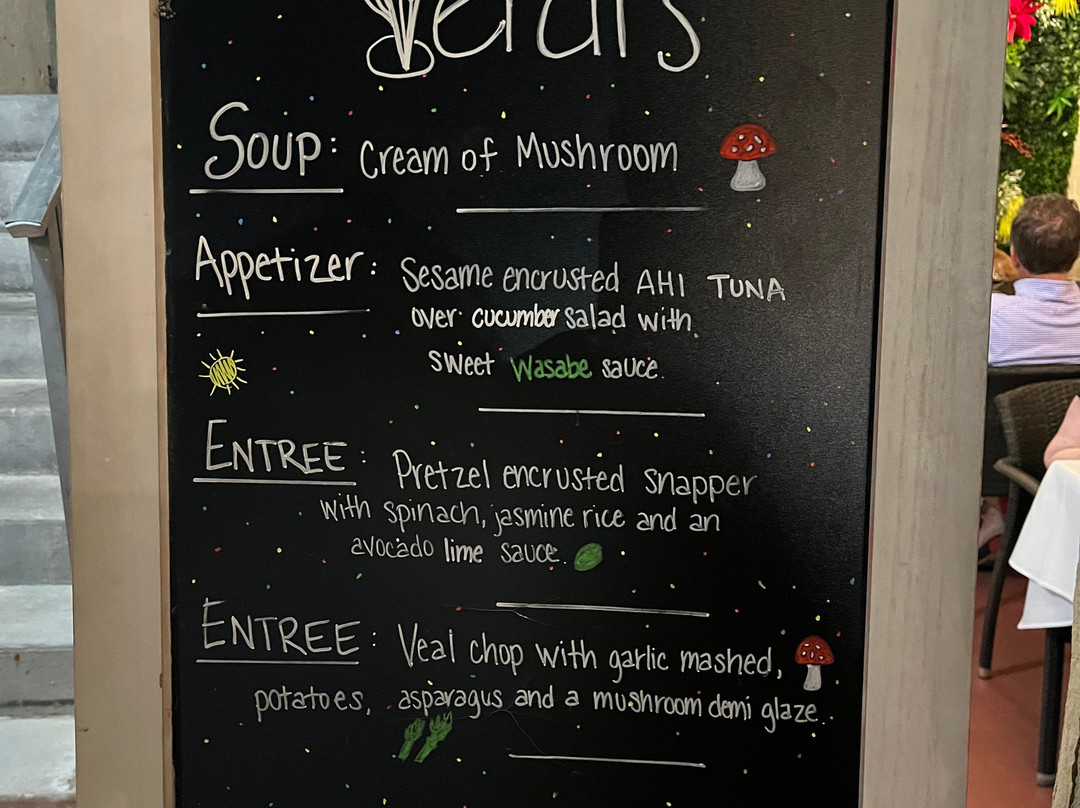 Soup: Cream of Mushroom
Appetizer: Sesame encrusted AHI TUNA
over cucumber salad with
sweet wasabe sauce.
ENTREE: Pretzel encrusted snapper
with spinach, jasmine rice and an
avocado lime sauce.
ENTREE: Veal chop with garlic mashed,
potatoes, asparagus and a mushroom demi glaze.